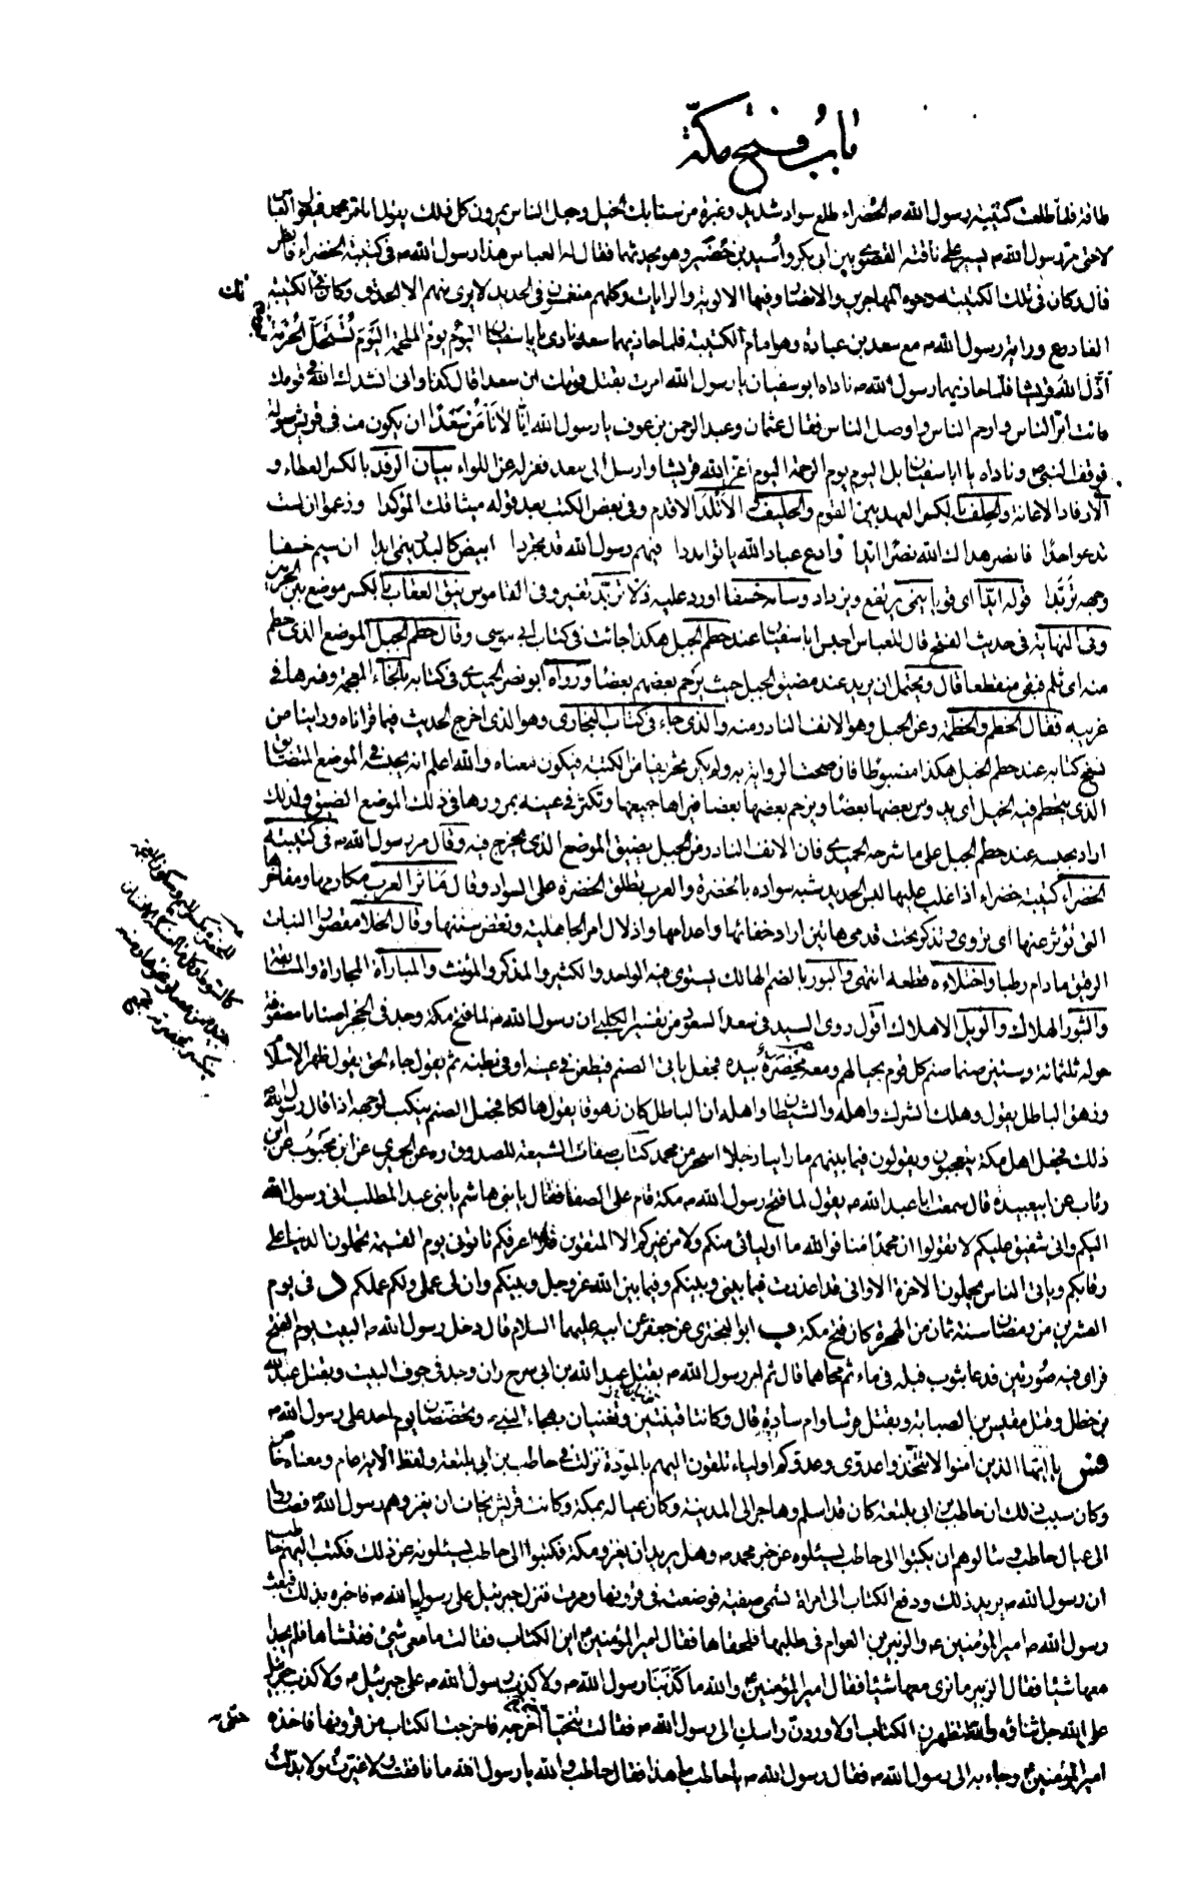 باب فتح مكة
طاقة فلما طلعت كتيبة رسول الله ص الخضراء طلع سواد شديد وغبرة من سنابك الخيل وجعل الناس يمرون كل ذلك يقول اما مر محمد فيقول العباس
لا حتى مر رسول الله ص يسير على ناقته القصوى بين ابي بكر وأسيد بن حُضَير وهو يحدثهما فقال له العباس هذا رسول الله ص في كتيبته الخضراء فانظر
قال وكان في تلك الكتيبة وجوه المهاجرين والانصار وفيها الالوية والرايات وكلهم منغمسون في الحديد لا يرى منهم الا الحدق وكان في الكتيبة
الفا دارع وراية رسول الله ص مع سعد بن عبادة وهو امام الكتيبة فلما حاذاهما سعد نادى يا با سفيان اليوم يوم الملحمة اليوم تُستحلّ الحُرمة
أذَلّ الله قريشا فلما حاذاهما رسول الله ص ناداه ابو سفيان يا رسول الله امرت بقتل قومك ان سعدا قال كذا واني انشدك الله في قومك
فانت ابر الناس وارحم الناس واوصل الناس فقال عثمان وعبد الرحمن بن عوف يا رسول الله إنّا لا نأمن سعدا ان يكون منه في قريش صولة
فوقف النبي ص وناداه يا ابا سفيان بل اليوم يوم الرحمة اليوم اعز الله قريشا وارسل الى سعد فعزله عن اللواء بيان الرفد بالكسر العطاء و
الارفاد الاعانة والحلف بالكسر العهد بين القوم والحليف الاتلد الاقدم وفي بعض الكتب بعد قوله ميثاقك المؤكدا وزعموا ان لست
تدعو احدا فانصر هداك الله نصرًا ابّدا وادع عباد الله ياتوا مددا فيهم رسول الله قد تجردا ابيض كالبدر ينمي ابدا ان سيم خسفا
وجهه تربّدا قوله ابّدا اي قويا ينمي يرتفع ويزداد وسامه خسفا اورد عليه ذلا تربّد تغير وفي القاموس نيق العقاب بالكسر موضع بين الحرمين
وفي النهاية في حديث الفتح قال للعباس احبس ابا سفيان عند حطم الجبل هكذا جاءت في كتاب ابي موسى وقال حطم الجبل الموضع الذي حطم
منه اي ثلم فبقي منقطعا قال ويحتمل ان يريد عند مضيق الجبل حيث يزحم بعضهم بعضا ورواه ابو نصر الحميدي في كتابه بالخاء المعجمة وفسرها في
غريبه فقال الخطم والخطمة رعن الجبل وهو الانف النادر منه والذي جاء في كتاب البخاري وهو الذي اخرج الحديث فيما قراناه ورايناه من
نسخ كتابه عند حطم الخيل هكذا مضبوطا فان صحت الرواية به ولم يكن تحريفا من الكتبة فيكون معناه والله اعلم انه يحبسه في الموضع المتضايق
الذي يتحطم فيه الخيل اي يدوس بعضها بعضا ويزحم بعضها بعضا فيراها جميعها وتكثر في عينه بمرورها في ذلك الموضع الضيق وكذلك
اراد بحبسه عند خطم الجبل على ما شرحه الحميدي فان الانف النادر من الجبل يضيق الموضع الذي يخرج فيه وقال مر رسول الله ص في كتيبته
الخضراء كتيبة خضراء اذا غلب عليها لبس الحديد شبه سواده بالخضرة والعرب تطلق الخضرة على السواد وقال مآثر العرب مكارمها ومفاخرها
التي تؤثر عنها اي تروى وتذكر تحت قدمي هاتين اراد اخفائها واعدامها واذلال امر الجاهلية ونقض سنتها وقال الخلا مقصور النبات
الرقيق ما دام رطبا واختلاءه قطعه انتهى والبور بالضم الهالك يستوي فيه الواحد والكثير والمذكر والمؤنث والمباراة المجاراة والمسابقة
والثبور الهلاك والويل الاهلاك اقول روى السيد في سعد السعود من تفسير الكلبي ان رسول الله ص لما فتح مكة وجد في الحجر اصناما مصفوفة
حوله ثلثمائة وستين صنما صنم كل قوم بحيالهم ومعه مخصرة بيده فجعل ياتي الصنم فيطعن في عينه او في بطنه ثم يقول جاء الحق يقول ظهر الاسلام
وزهق الباطل يقول وهلك الشرك واهله والشيطان واهله ان الباطل كان زهوقا يقول هالكا فجعل الصنم ينكب لوجهه اذا قال رسول الله
ذلك فجعل اهل مكة يتعجبون ويقولون فيما بينهم ما راينا رجلا اسحر من محمد كتاب صفات الشيعة للصدوق ره عن الحميري عن ابن محبوب عن ابن
رئاب عن ابي عبيدة قال سمعت ابا عبد الله ص يقول لما فتح رسول الله ص مكة قام على الصفا فقال يا بني هاشم يا بني عبد المطلب اني رسول الله
اليكم واني شفيق عليكم لا تقولوا ان محمدا منا فوالله ما اوليائي منكم ولا من غيركم الا المتقون فلا اعرفكم تاتوني يوم القيمة تحملون الدنيا على
رقابكم وياتي الناس يحملون الاخرة الا واني قد اعذرت فيما بيني وبينكم وفيما بين الله عز وجل وبينكم وان لي عملي ولكم عملكم د في يوم
العشرين من رمضان سنة ثمان من الهجرة كان فتح مكة ب ابو البختري عن جعفر عن ابيه عليهما السلام قال دخل رسول الله ص البيت يوم الفتح
فراى فيه صُورتين فدعا بثوب فبله في ماء ثم محاهما قال ثم امر رسول الله ص بقتل عبد الله بن ابي سرح وان وجد في جوف البيت وبقتل عبد الله
بن خطل وقتل مقيس بن صبابة وبقتل فرتنا وام سارة قال وكانتا قينتين تزنيان وتغنيان بهجاء النبي ص وتحضضان يوم احد على رسول الله ص
فس يا ايها الذين امنوا لا تتخذوا عدوي وعدوكم اولياء تلقون اليهم بالمودة نزلت في حاطب بن ابي بلتعة ولفظ الاية عام ومعناه خاص
وكان سبب ذلك ان حاطب بن ابي بلتعة كان قد اسلم وهاجر الى المدينة وكان عياله بمكة وكانت قريش تخاف ان يغزوهم رسول الله ص فصاروا
الى عيال حاطب وسالوهم ان يكتبوا الى حاطب يسئلوه عن خبر محمد ص وهل يريد ان يغزو مكة فكتبوا الى حاطب يسئلونه عن ذلك فكتب اليهم حاطب
ان رسول الله ص يريد ذلك ودفع الكتاب الى امراة تسمى صفية فوضعته في قرونها ومرت فنزل جبرئيل على رسول الله ص فاخبره بذلك فبعث
رسول الله ص امير المؤمنين ع والزبير بن العوام في طلبها فلحقاها فقال امير المؤمنين ع اين الكتاب فقالت ما معي شيء ففتشاها فلم يجدا
معها شيئا فقال الزبير ما نرى معها شيئا فقال امير المؤمنين ع والله ما كَذَبَنا رسول الله ص ولا كذب رسول الله ص على جبرئيل ع ولا كذب جبرئيل
على الله جل ثناؤه والله لتظهرن الكتاب او لاوردن راسك الى رسول الله ص فقالت تنحيا حتى اخرجه فاخرجت الكتاب من قرونها فاخذه
امير المؤمنين ع وجاء به الى رسول الله ص فقال رسول الله ص يا حاطب ما هذا فقال حاطب والله يا رسول الله ما نافقت ولا غيرت ولا بدلت